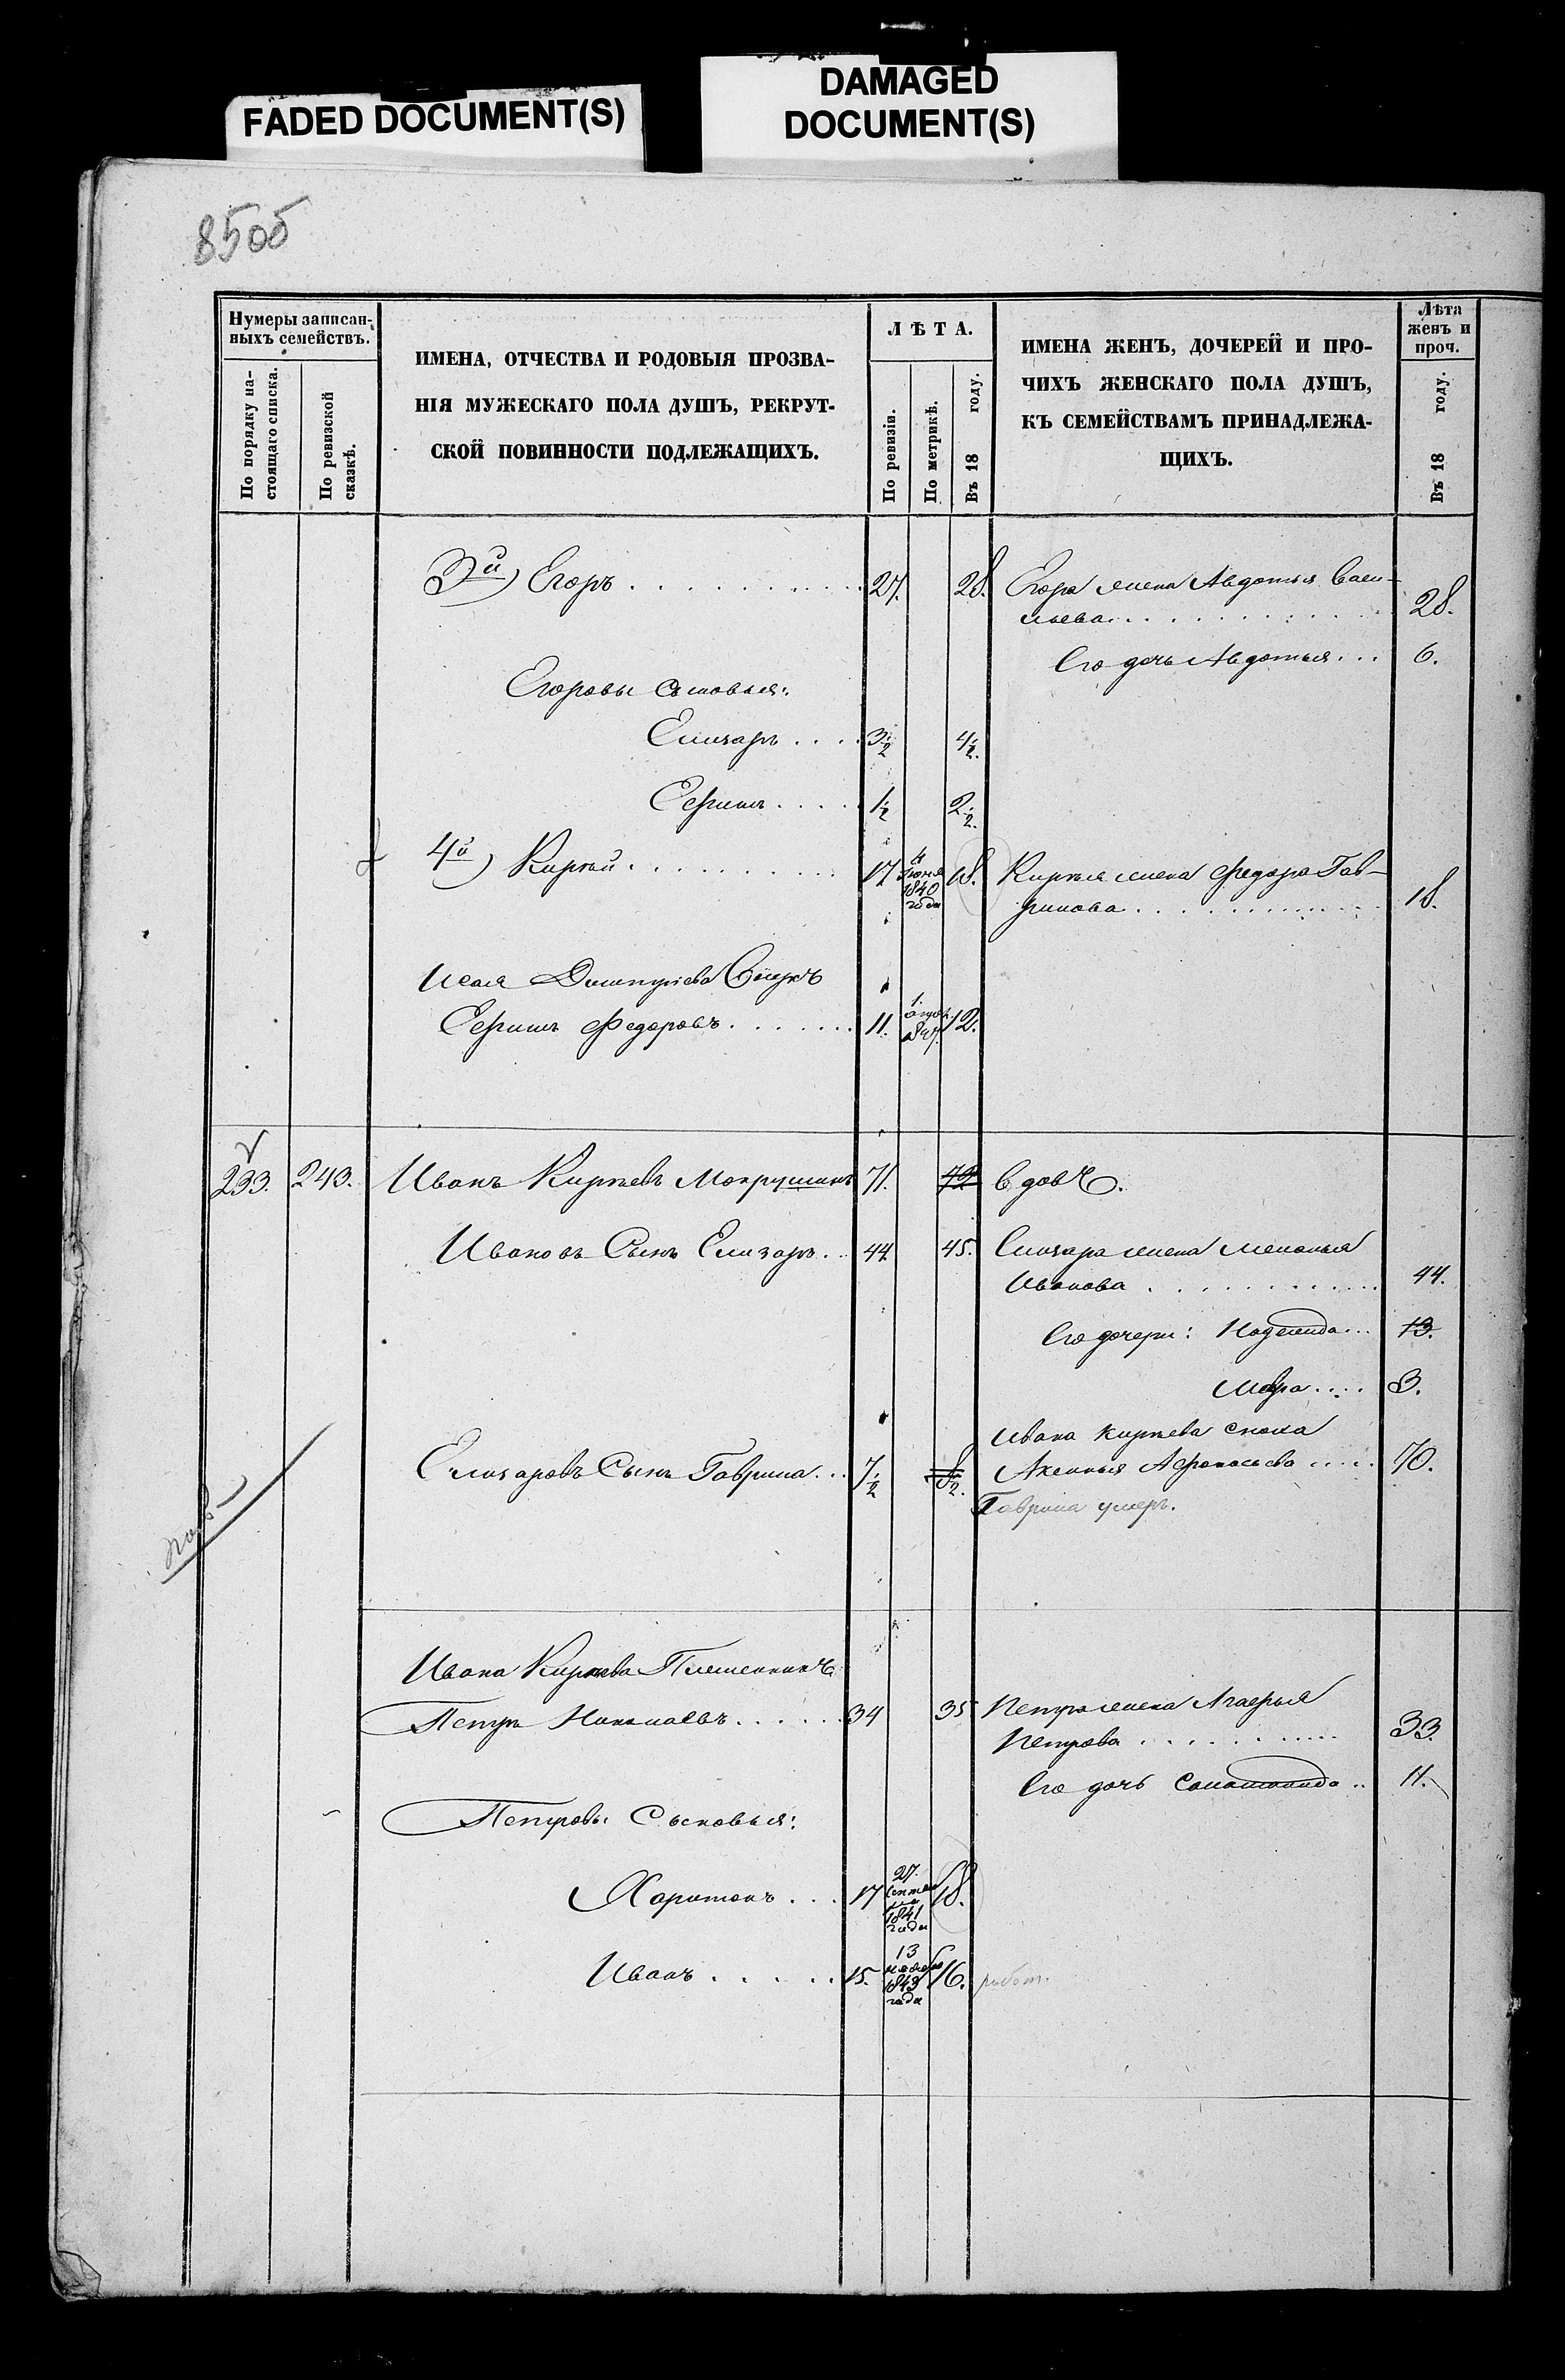 FADED DOCUMENT(S)
DAMAGED
DOCUMENT(S)
Нумеры записан-
ныхъ семействъ.
По порядку на-
стоящаго списка.
По ревизской
сказкѣ.
ИМЕНА, ОТЧЕСТВА И РОДОВЫЯ ПРОЗВА-
НІЯ МУЖЕСКАГО ПОЛА ДУШЪ, РЕКРУТ-
СКОЙ ПОВИННОСТИ ПОДЛЕЖАЩИХЪ.
ЛѢТА.
По ревизіи.
По метрикѣ.
Въ 18 году.
ИМЕНА ЖЕНЪ, ДОЧЕРЕЙ И ПРО-
ЧИХЪ ЖЕНСКАГО ПОЛА ДУШЪ,
КЪ СЕМЕЙСТВАМЪ ПРИНАДЛЕЖА-
ЩИХЪ.
Лѣта
женъ и
проч.
Въ 18 году.
3й) Егоръ . . . 27. 28. Егора жена Авдотья Васи-
льева . . . 28.
Его дочь Авдотья . . . 6.
Егоровы Сыновья:
Елизаръ . . . 3½ 4½.
Ефимъ . . . 1½ 2½.
4й) Кирѣй . . . 17 4 Іюня 1840 года 18. Кирѣя жена Федора Гав-
рилова . . . 18.
Исая Дмитріева Внукъ
Ефимъ Федоровъ . . . 11. 12.
233. 243. Иванъ Кирѣевъ Мокрушинъ 71. 72 вдовъ.
Ивановъ Сынъ Елизаръ . . 44 45. Елизара жена Меланья
Иванова . . . 44.
Его дочери: Надежда . . . 13.
Мавра . . . 3.
Ивана Кирѣева сноха
Елизаровъ Сынъ Гаврила . . . 7½ 8½. Аксинья Афонасьева . . . 70.
Гаврила умеръ.
Ивана Кирѣева Племянникъ
Петръ Николаевъ . . . 34 35 Петра жена Агафья
Петрова . . . 33.
Его дочь . . 11.
Петровы Сыновья:
Харитонъ . . . 17 27. 1841 года 18.
Иванъ . . . 15. 13 ноября 1843 года 16. работ.